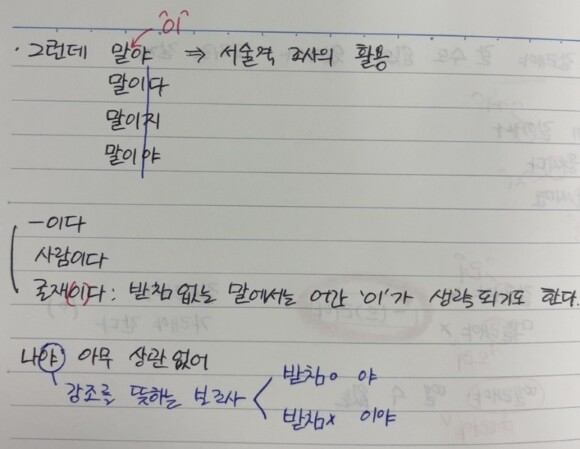 '이'
· 그런데 말야 ⇒ 서술격 조사의 활용
말이다
말이지
말이야
-이다
사람이다
로재(이)다: 받침 없는 말에서는 어간 '이'가 생략되기도 한다.
나야 아무 상관 없어
강조를 뜻하는 보조사
받침o 야
받침x 이야